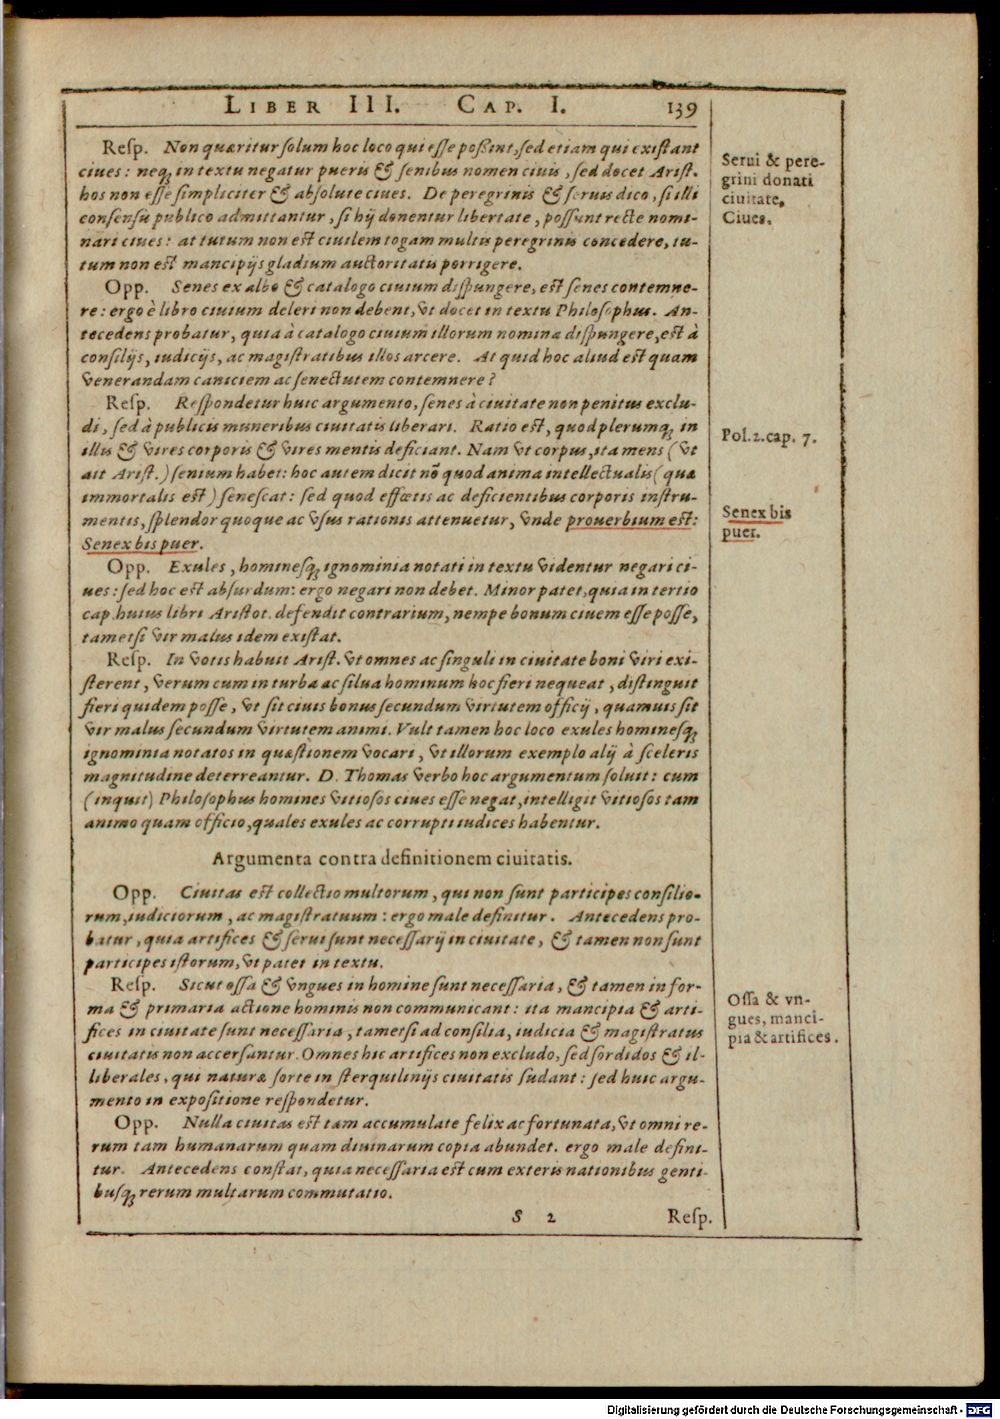 LIBER III. CAP. I. 139
Resp. Non quæritur solum hoc loco qui esse possint, sed etiam qui existant
ciues: neq; in textu negatur pueris & senibus nomen ciuis, sed docet Arist.
hos non esse simpliciter & absolute ciues. De peregrinis & seruis dico, si illi
consensu publico admittantur, si hij donentur libertate, possunt recte nomi-
nari ciues: at tutum non est ciuilem togam multis peregrinis concedere, tu-
tum non est mancipijs gladium auctoritatis porrigere.
Serui & pere-
grini donati
ciuitate,
Ciues.
Opp. Senes ex albo & catalogo ciuium dispungere, est senes contemne-
re: ergo è libro ciuium deleri non debent, vt docet in textu Philosophus. An-
tecedens probatur, quia à catalogo ciuium illorum nomina dispungere, est à
consilijs, iudicijs, ac magistratibus illos arcere. At quid hoc aliud est quam
venerandam caniciem ac senectutem contemnere?
Resp. Respondetur huic argumento, senes à ciuitate non penitus exclu-
di, sed à publicis muneribus ciuitatis liberari. Ratio est, quod plerumq; in
illis & vires corporis & vires mentis deficiant. Nam vt corpus, ita mens (vt
ait Arist.) senium habet: hoc autem dicit nõ quod anima intellectualis (quæ
immortalis est) senescat: sed quod effœtis ac deficientibus corporis instru-
mentis, splendor quoque ac vsus rationis attenuetur, vnde prouerbium est:
Senex bis puer.
Pol. 2. cap. 7.
Senex bis
puer.
Opp. Exules, hominesq; ignominia notati in textu videntur negari ci-
ues: sed hoc est absurdum: ergo negari non debet. Minor patet, quia in tertio
cap. huius libri Aristot. defendit contrarium, nempe bonum ciuem esse posse,
tametsi vir malus idem existat.
Resp. In votis habuit Arist. vt omnes ac singuli in ciuitate boni viri exi-
sterent, verum cum in turba ac silua hominum hoc fieri nequeat, distinguit
fieri quidem posse, vt sit ciuis bonus secundum virtutem officij, quamuis sit
vir malus secundum virtutem animi. Vult tamen hoc loco exules hominesq;
ignominia notatos in quæstionem vocari, vt illorum exemplo alij à sceleris
magnitudine deterreantur. D. Thomas verbo hoc argumentum soluit: cum
(inquit) Philosophus homines vitiosos ciues esse negat, intelligit vitiosos tam
animo quam officio, quales exules ac corrupti iudices habentur.
Argumenta contra definitionem ciuitatis.
Opp. Ciuitas est collectio multorum, qui non sunt participes consilio-
rum, iudiciorum, ac magistratuum: ergo male definitur. Antecedens pro-
batur, quia artifices & serui sunt necessarij in ciuitate, & tamen non sunt
participes istorum, vt patet in textu.
Resp. Sicut ossa & vngues in homine sunt necessaria, & tamen in for-
ma & primaria actione hominis non communicant: ita mancipia & arti-
fices in ciuitate sunt necessaria, tametsi ad consilia, iudicia & magistratus
ciuitatis non accersantur. Omnes hic artifices non excludo, sed sordidos & il-
liberales, qui naturæ sorte in sterquilinijs ciuitatis sudant: sed huic argu-
mento in expositione respondetur.
Ossa & vn-
gues, manci-
pia & artifices.
Opp. Nulla ciuitas est tam accumulate felix ac fortunata, vt omni re-
rum tam humanarum quam diuinarum copia abundet. ergo male defini-
tur. Antecedens constat, quia necessaria est cum exteris nationibus genti-
busq; rerum multarum commutatio.
S 2 Resp.
Digitalisierung gefördert durch die Deutsche Forschungsgemeinschaft - DFG